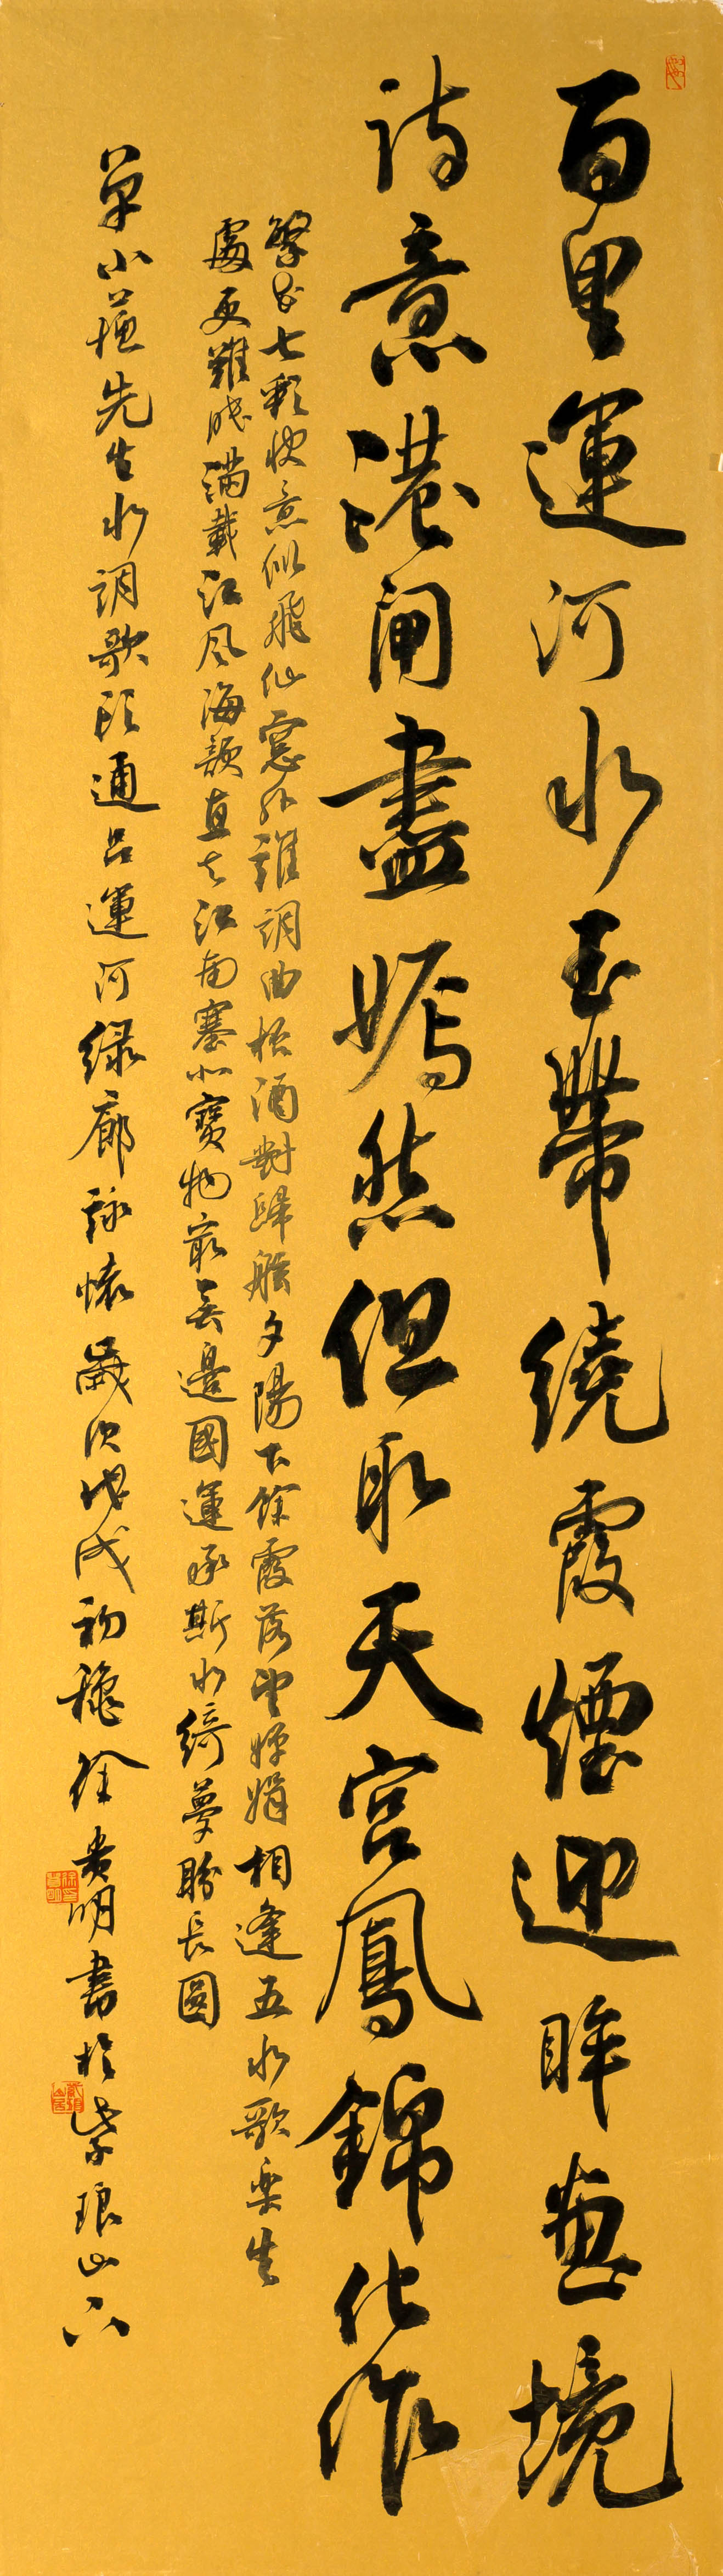 百里運河水玉帶繞霞煙迎眸畫境
詩意港閘盡嫣然但取天宮鳳錦化作
繁花七彩快意似飛仙窗外誰調曲把酒對歸船夕陽下餘霞落望嬋娟相逢五水歌樂生
處更難眠滿載江風海韻直與江南塞北寶物最無邊國運承斯水綺夢勝長圖
單小薇先生水調歌頭通呂運河綠廊詠懷歲次戊戌初穐徐貴明書於紫琅山下